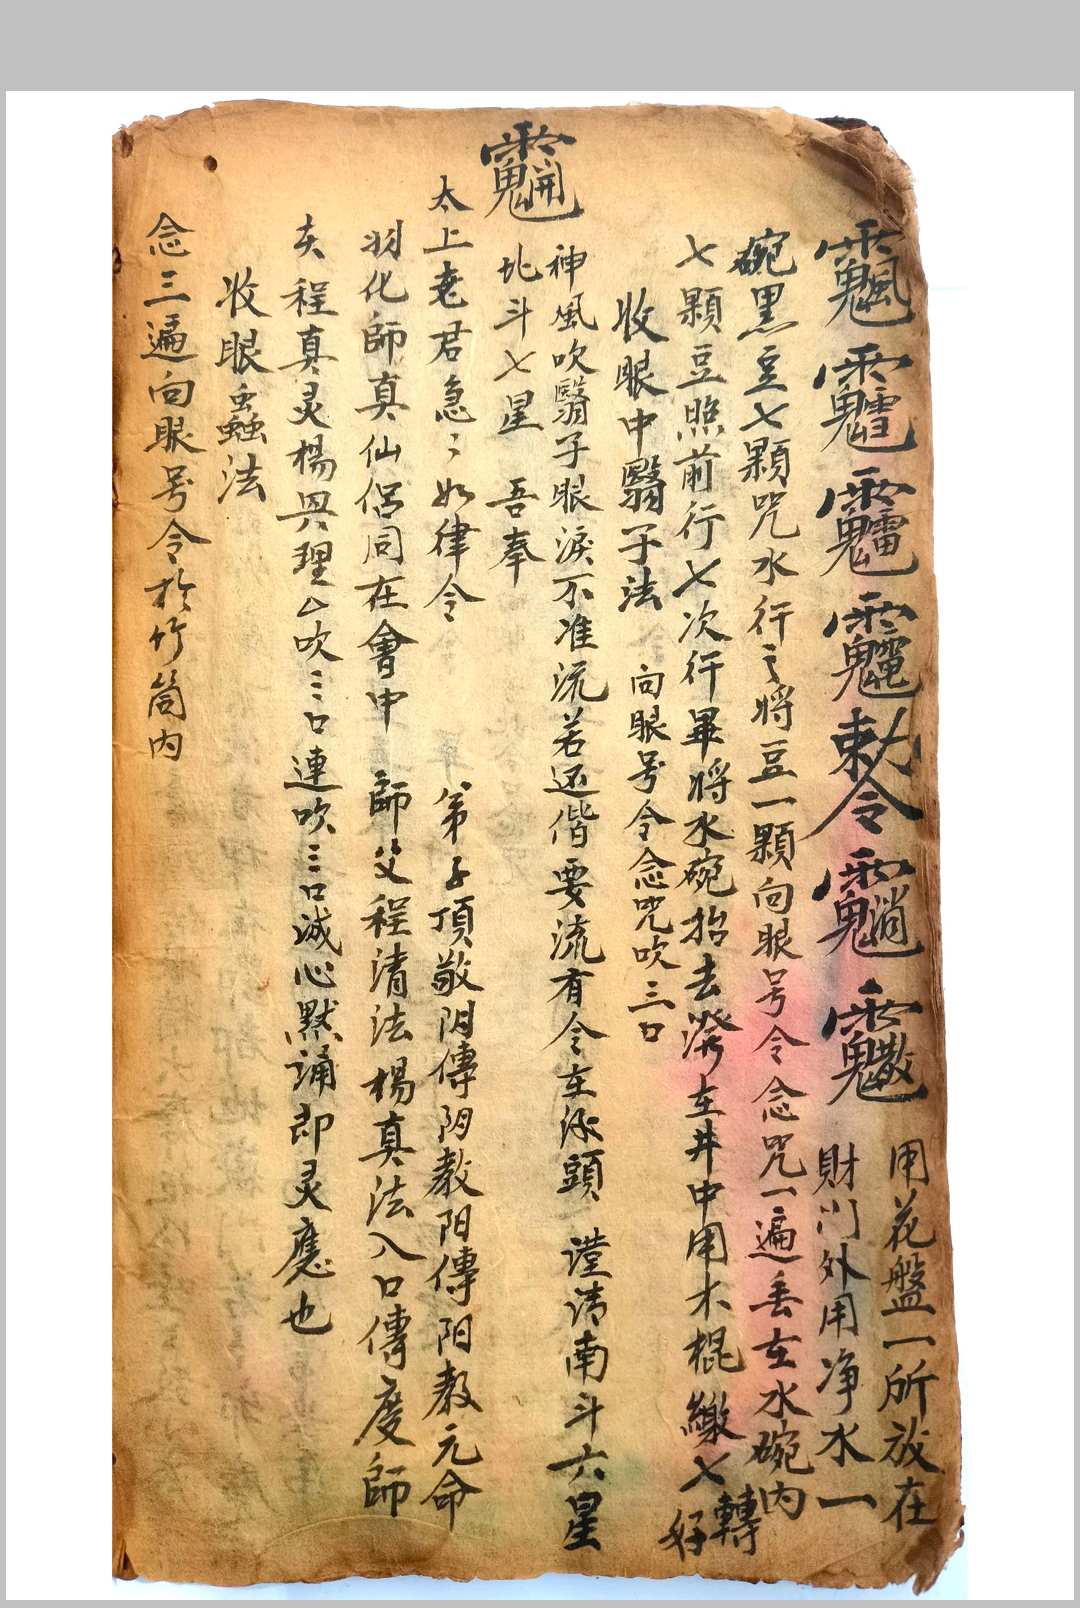 敕令
用花盤一所放在
財門外用净水一
碗黑豆七顆咒水行之將豆一顆向眼号令念咒一遍丢在水碗内
七顆豆照前行七次行畢將水碗抬去潑在井中用木棍繳七轉好
收眼中翳子法 向眼号令念咒吹三口
神風吹翳子眼淚不准流若还偕要流有令在沵頭 謹請南斗六星
北斗七星 吾奉
太上老君急〻如律令 弟子頂敬阴傳阴教阳傳阳教元命
羽化師真仙侣同在會中 師父程清法楊真法入口傳度師
夫程真灵楊興理厶吹三口連吹三口誠心默誦即灵應也
收眼虫蟲法
念三遍向眼号令於竹筒内